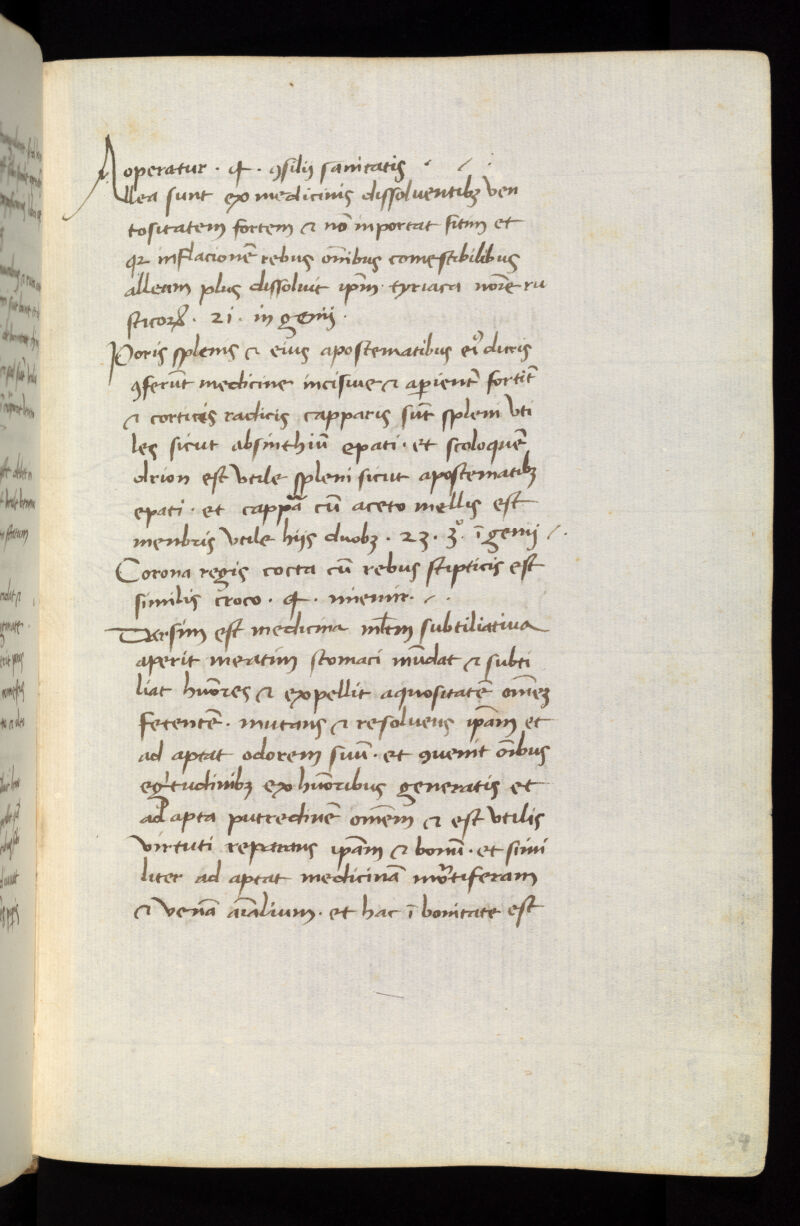 operatur · 4 · ꝯsilij sanitatis
Allea sunt ex medicinis dissoluentibꝫ ven
tositatem fortem ⁊ nō inportat sitim et
qꝛ inflacionē rebus om̄ibus comestibilibus
alleam plus dissoluit ip̄m tyriaca nōie ru
sticoꝝ · 21 · in genij ·
Poris splenis ⁊ eius apostematibus ei᷒ duris
ꝯferūt medicine incisiue ⁊ aperient̄ fortit̄
⁊ cortices radicis capparis sūt spleni vti
les sicut absinthiū epati · et scoloquen̄
drion est vtile spleni sicut apostematibꝫ
epati · et cappā cū aceto mellis est
menbris vtile hijs duobꝫ · 23 · 3° · ī genij
Corona regis cocta cū rebus stipticis est
similis croco · 4 · miemir ·
Dersim est medicina ml̄tm subtiliatiua
aperit meatim stomaci mūdat ⁊ subti
liat hūores ⁊ expellit aquositatē omēꝫ
fetentē · mutans ⁊ resoluens ip̄am et
ad aptat odorem suū · et ꝯuenit oībus
egritudinibꝫ ex hūoribus generatis et
adapta putredinē omēm ⁊ est vtilis
virtuti reparans ip̄am ⁊ bonū · et simi
liter ad aptat medicinā mortiferam
⁊ venā aīalium · et hac ī bonitate est
54